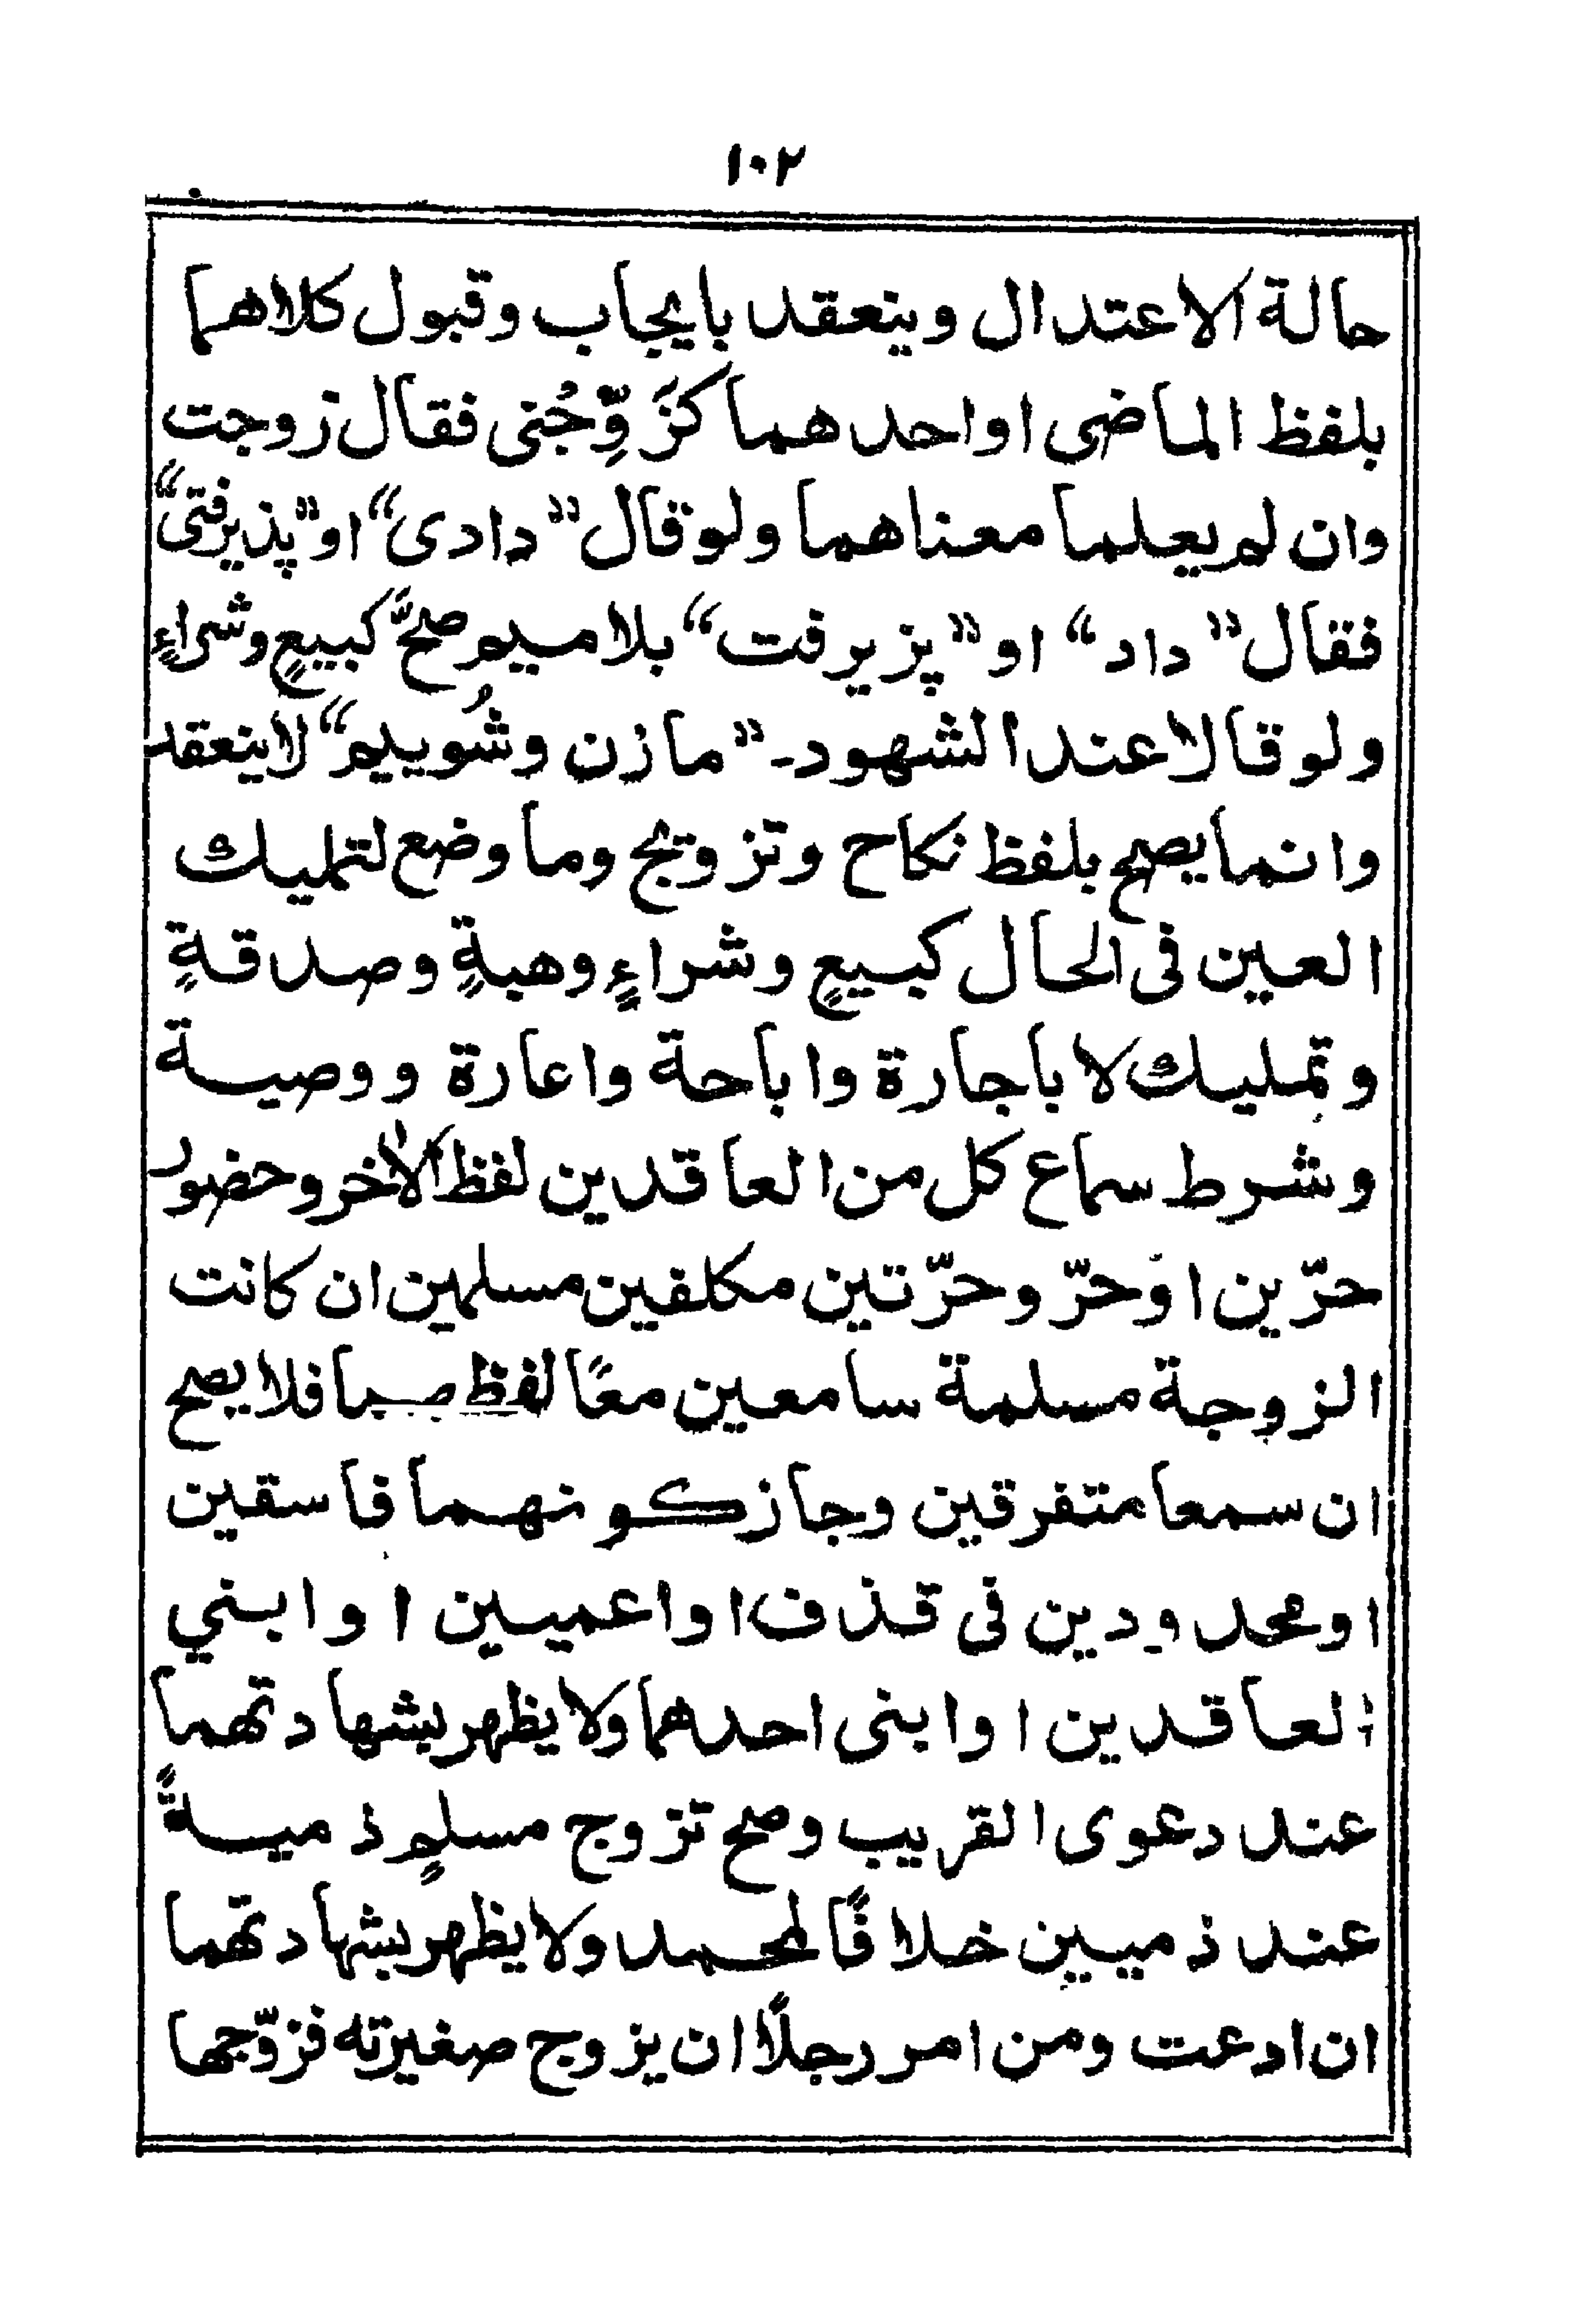 ١٠٢
حالة الاعتدال وينعقد بايجاب وقبول كلاهما
بلفظ الماضى او احدهما كزَوِّجْنى فقال زوجت
وان لم يعلما معناهما ولو قال "دادى" او "پذيرفتى"
فقال "داد" او "پزيرفت" بلا ميم صحَّ كبيعٍ وشراءٍ
ولو قالا عند الشهود۔ "مازن وشُوييم" لا ينعقد
وانما يصح بلفظ نكاح وتزويج وما وضع لتمليك
العين فى الحال كبيعٍ وشراءٍ وهبةٍ وصدقةٍ
وتمليك لا باجارة واباحة واعارة ووصية
وشرط سماع كل من العاقدين لفظ الاٰخر وحضور
حرّين او حرّ وحرّتين مكلفين مسلمين ان كانت
الزوجة مسلمة سامعين معًا لفظهما فلا يصح
ان سمعا متفرقين وجاز كونهما فاسقين
او محدودين فى قذف او اعميين او ابني
العاقدين او ابنى احدهما ولا يظهر بشهادتهما
عند دعوى القريب وصح تزوج مسلمٍ ذميةً
عند ذميين خلافًا لمحمد ولا يظهر بشهادتهما
ان ادعت ومن امر رجلًا ان يزوج صغيرته فزوّجها